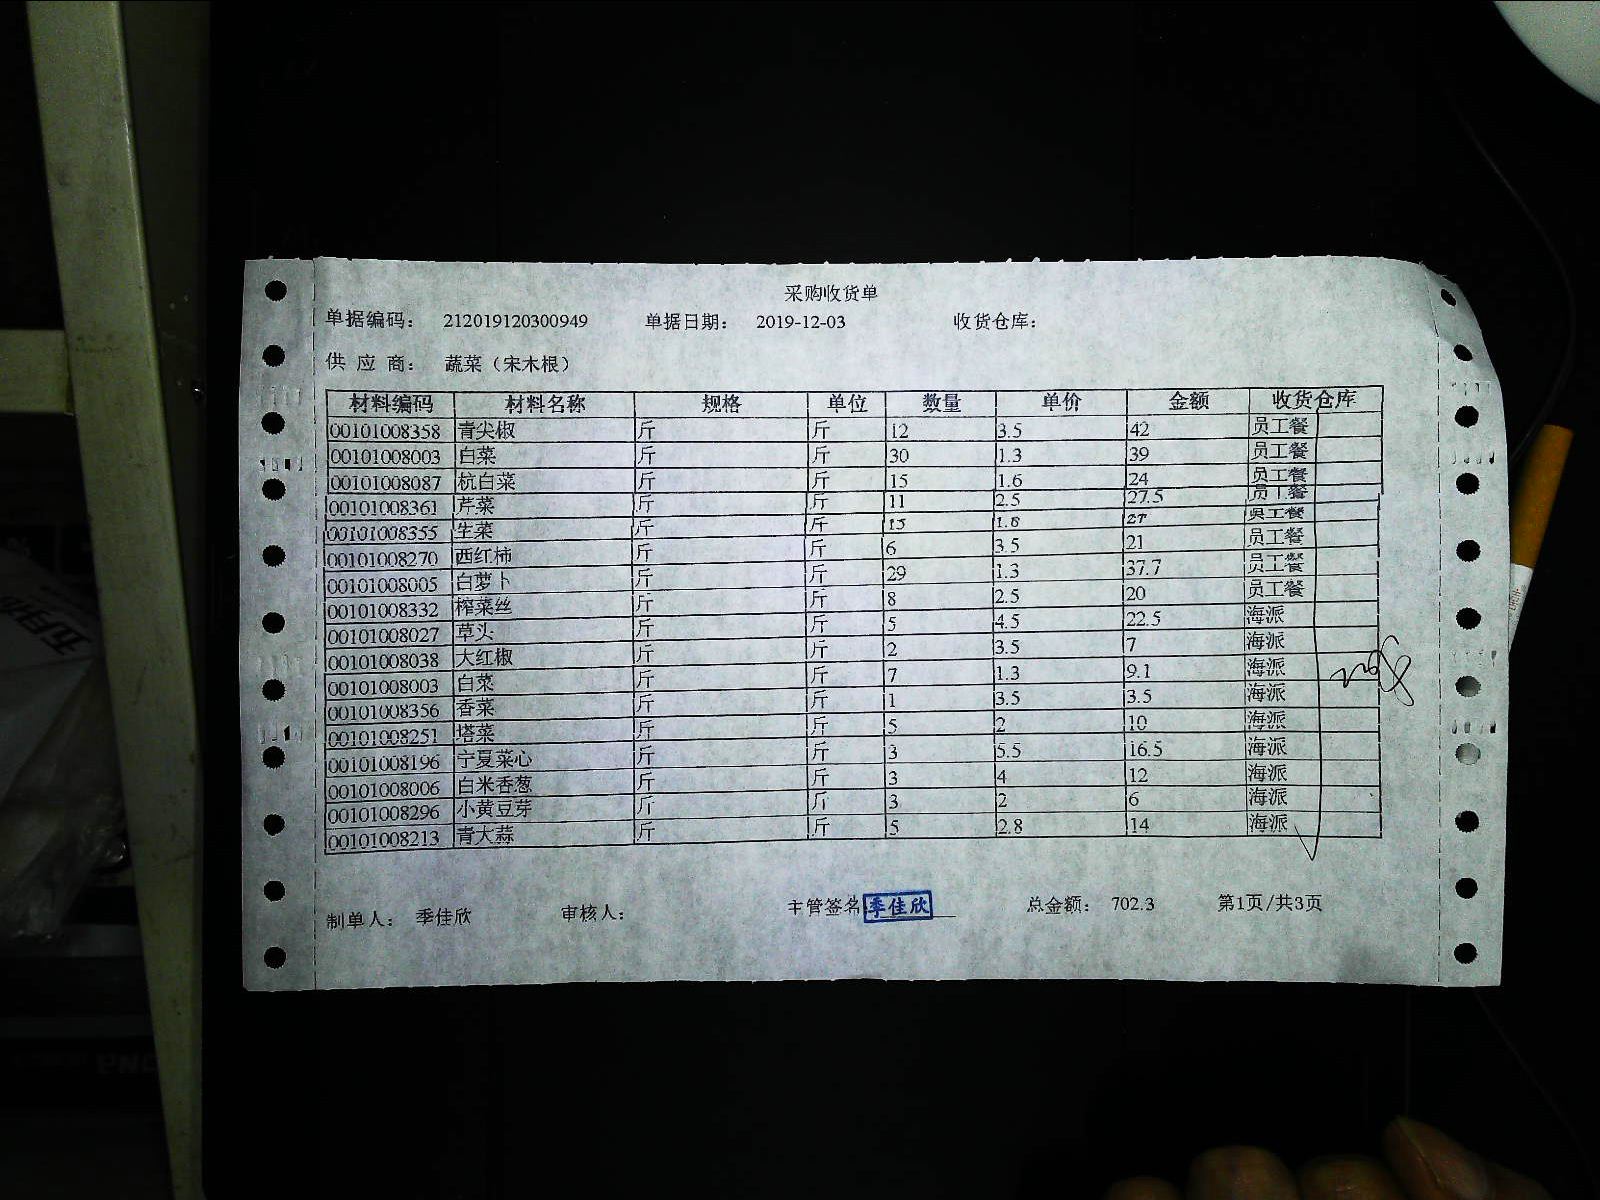 采购收货单
单据编码: 212019120300949 单据日期: 2019-12-03 收货仓库:
供应商: 蔬菜（宋木根）
材料编码 材料名称 规格 单位 数量 单价 金额 收货仓库
00101008358 青尖椒 斤 斤 12 3.5 42 员工餐
00101008003 白菜 斤 斤 30 1.3 39 员工餐
00101008087 杭白菜 斤 斤 15 1.6 24 员工餐
00101008361 芹菜 斤 斤 11 2.5 27.5 员工餐
00101008355 生菜 斤 斤 15 1.8 27 员工餐
00101008270 西红柿 斤 斤 6 3.5 21 员工餐
00101008005 白萝卜 斤 斤 29 1.3 37.7 员工餐
00101008332 榨菜丝 斤 斤 8 2.5 20 员工餐
00101008027 草头 斤 斤 5 4.5 22.5 海派
00101008038 大红椒 斤 斤 2 3.5 7 海派
00101008003 白菜 斤 斤 7 1.3 9.1 海派
00101008356 香菜 斤 斤 1 3.5 3.5 海派
00101008251 塔菜 斤 斤 5 2 10 海派
00101008196 宁夏菜心 斤 斤 3 5.5 16.5 海派
00101008006 白米香葱 斤 斤 3 4 12 海派
00101008296 小黄豆芽 斤 斤 3 2 6 海派
00101008213 青大蒜 斤 斤 5 2.8 14 海派
制单人: 季佳欣 审核人: 主管签名 季佳欣 总金额: 702.3 第1页/共3页